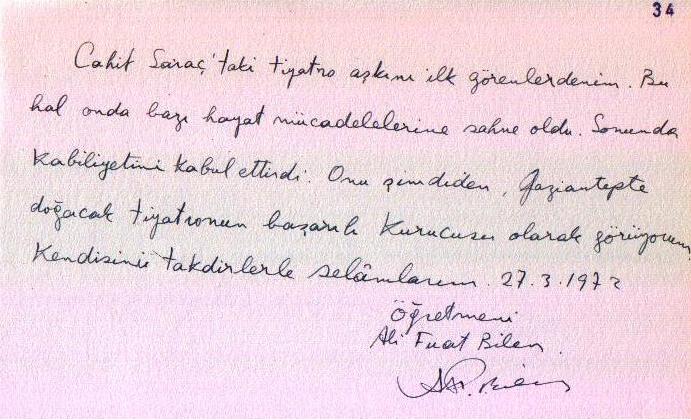 34
Cahit Saraç'taki tiyatro aşkını ilk görenlerdenim. Bu
hal onda bazı hayat mücadelelerine sahne oldu. Sonunda
Kabiliyetini kabul ettirdi. Onu şimdiden, Gaziantepte
doğacak tiyatronun başarılı Kurucusu olarak görüyorum
Kendisini takdirlerle selâmlarım. 27.3.1972
Öğretmeni
Ali Fuat Bilen.